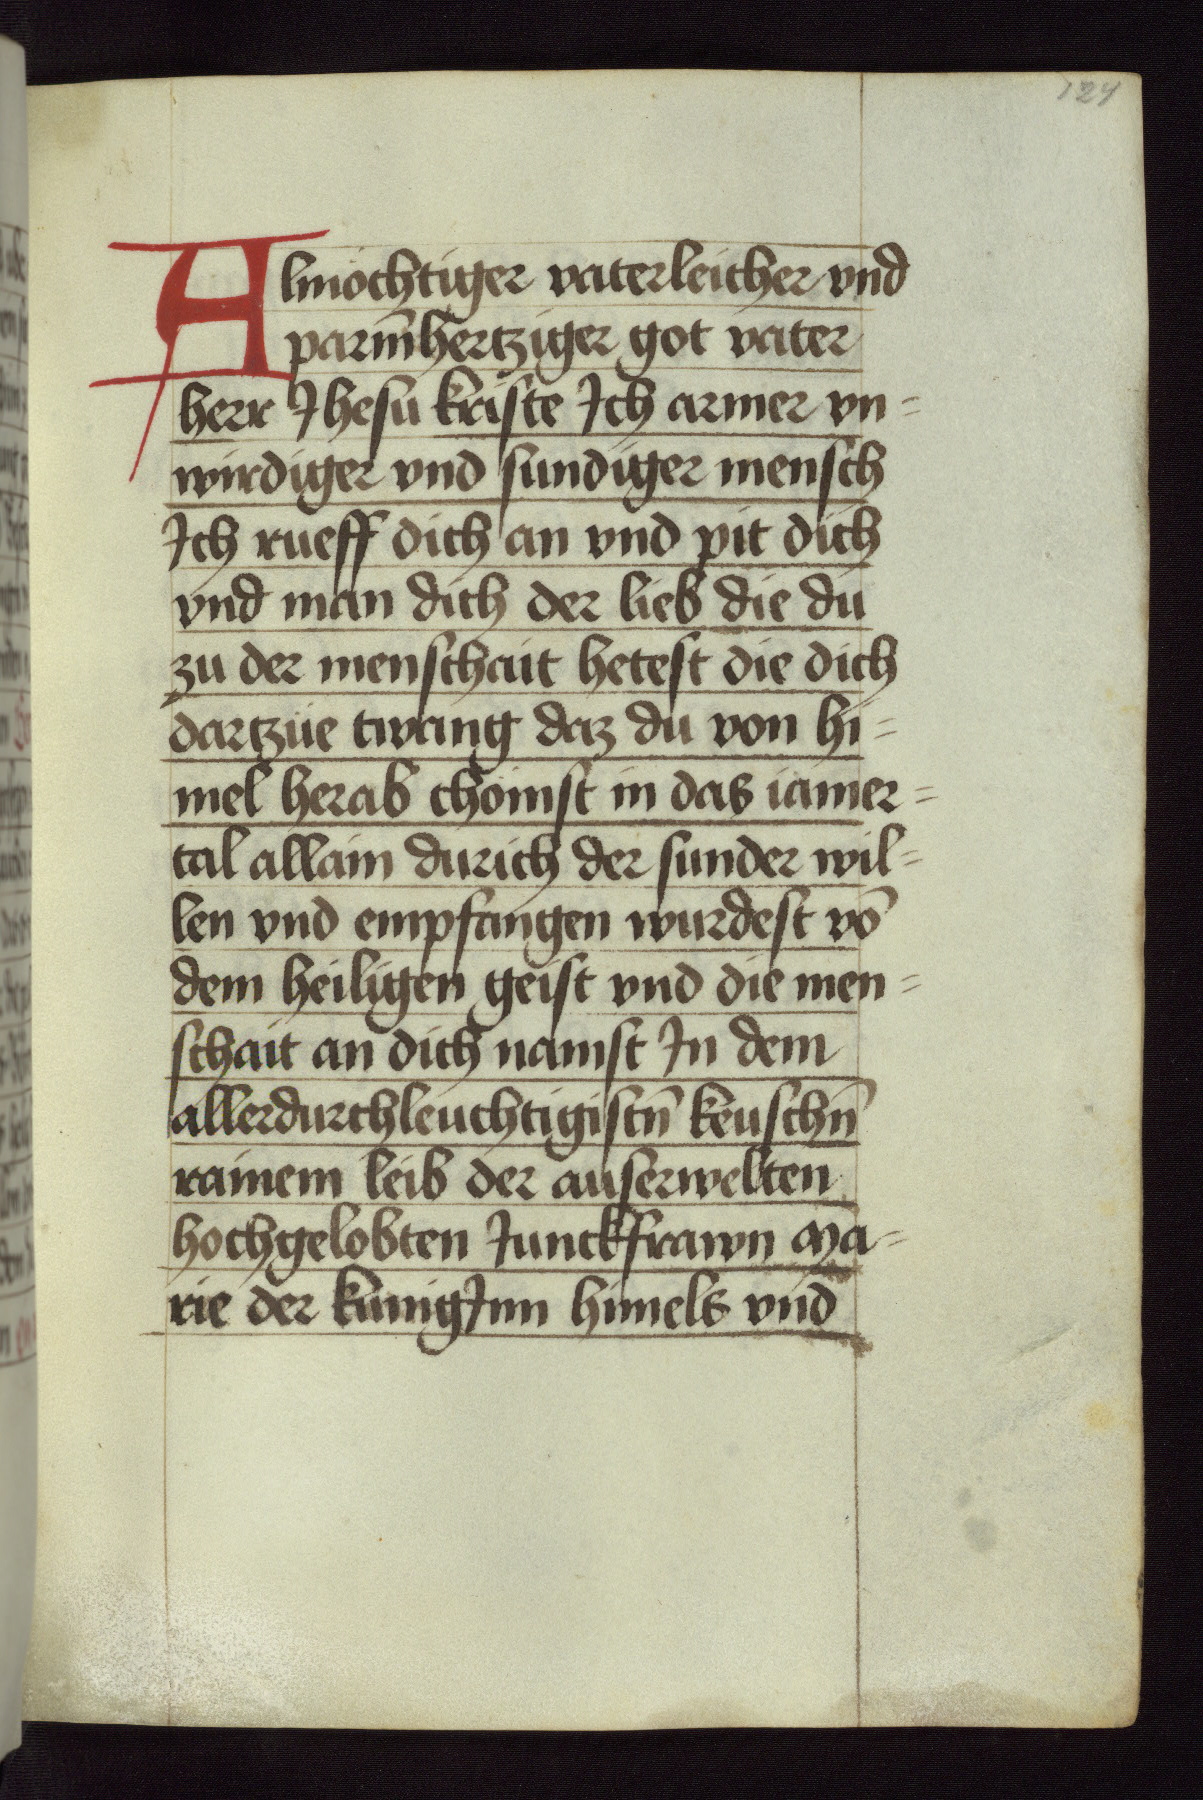 124
Almöchtiger vaterleicher vnd
parm̄hertziger got vater
herr Jhesu kriste Ich armer vn=
wirdiger vnd sundiger mensch
Ich rueff dich an vnd pit dich
vnd man dich der lieb die du
zu der menschait hetest die dich
dartzüe twang daz du von hi=
mel herab chömst in das iamer=
tal allain durich der sunder wil=
len vnd empfangen wurdest vō
dem heiligen geist vnd die men=
schait an dich namst In dem
allerdurchleuchtigistn̄ keuschn̄
rainem leib der auserwelten
hochgelobten Junckfrawn Ma=
rie der künigInn himels vnd